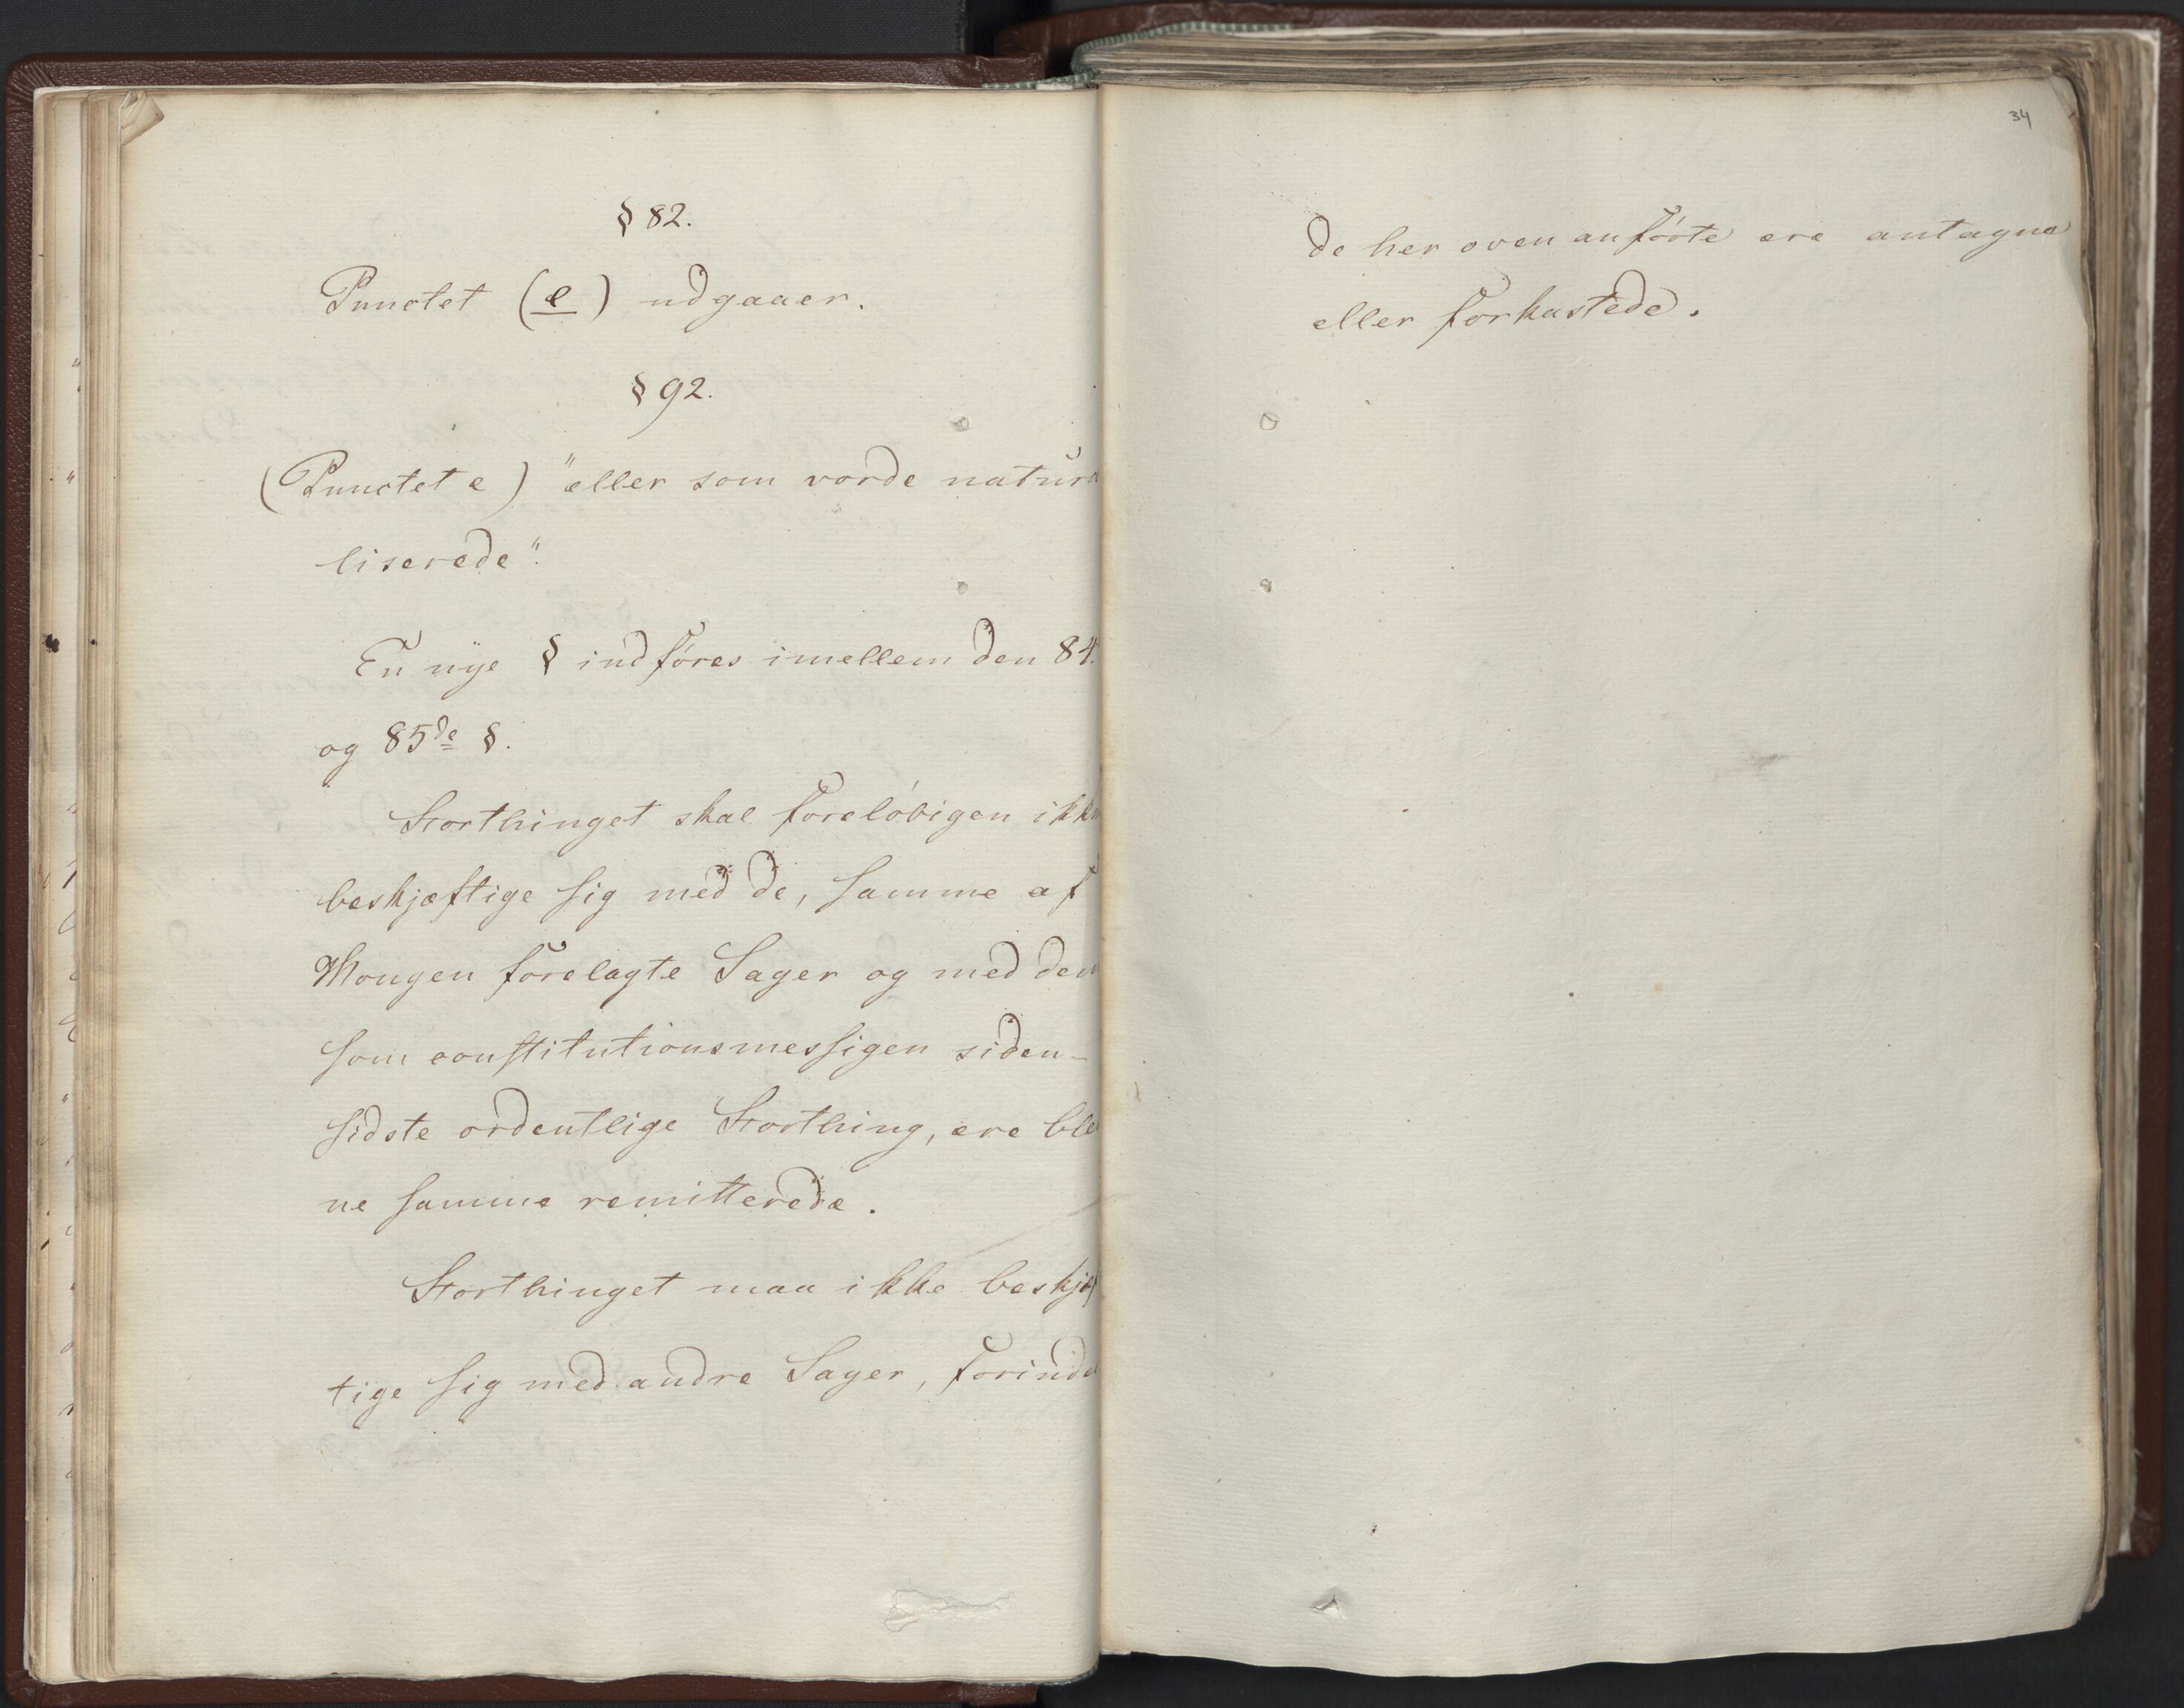 § 82.
Punctet (e) udgaaer.
§ 92.
(Punctet e) "eller som vorde natura
liserede".
En nye § indføres imellem den 84.
og 85de §.
Storthinget skal foreløbigen ikke
beskjæftige sig med de, samme af
Kongen forelagte Sager og med dem
som constitutionsmessigen siden-
sidste ordentlige Storthing, ere ble
ne samme remitterede.
Storthinget maa ikke beskjæf
tige sig med andre Sager, forinde
34
de her oven anførte ere antagne
eller forkastede.